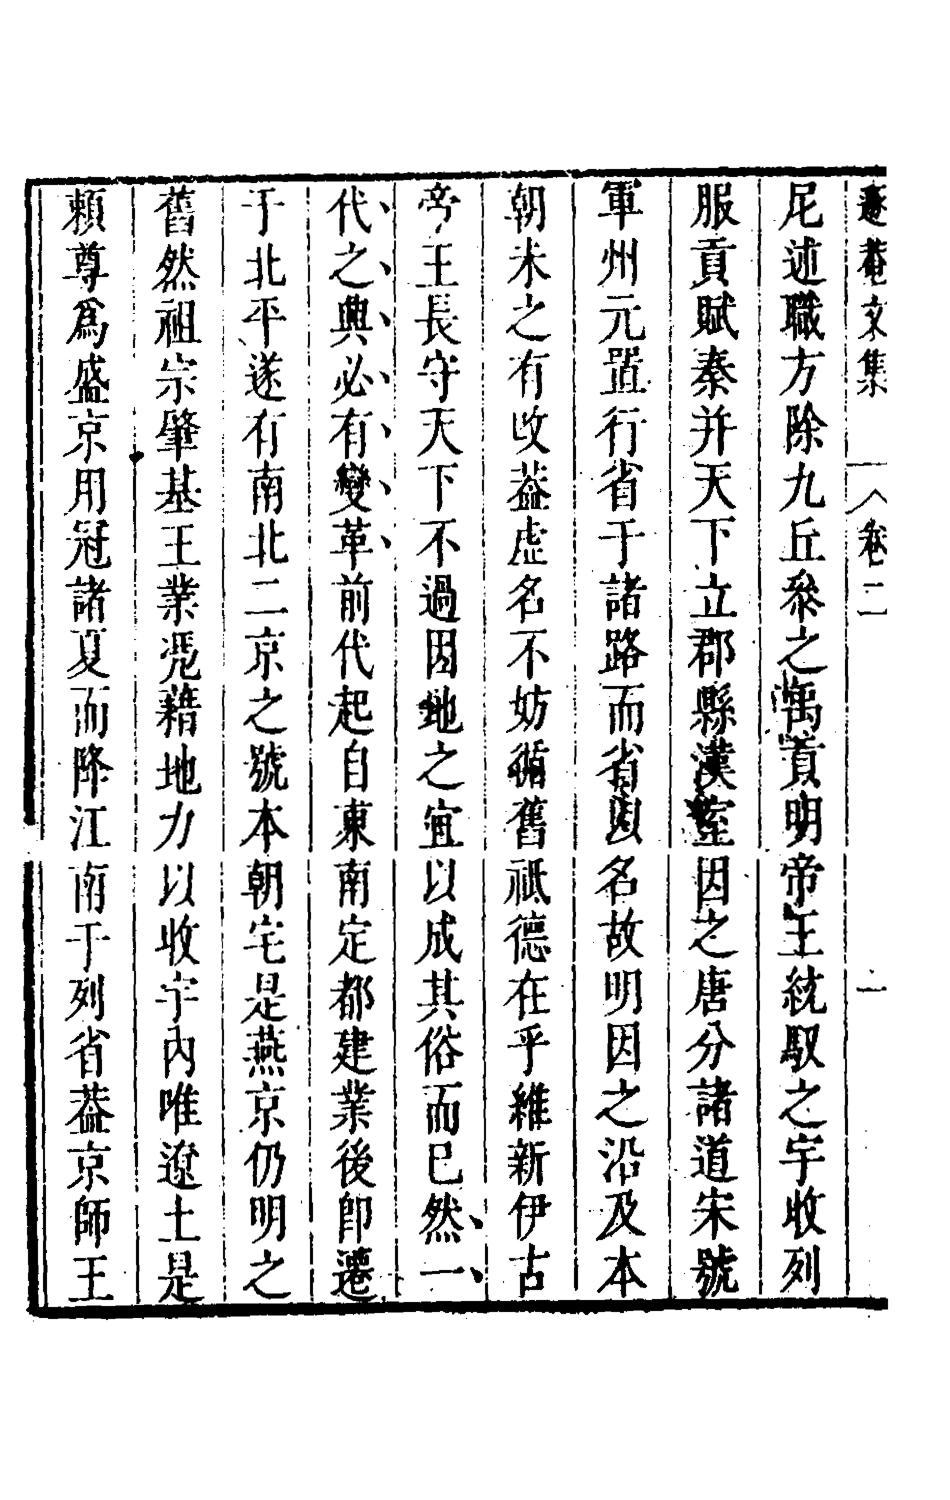 遂菴文集 卷二 一
尼述職方除九丘叅之禹貢明帝王統馭之宇收列
服貢賦秦并天下立郡縣漢室因之唐分諸道宋號
軍州元置行省于諸路而省以名故明因之沿及本
朝未之有改葢虛名不妨循舊祗德在乎維新伊古
帝王長守天下不過因地之宜以成其俗而已然一
代之興必有變革前代起自東南定都建業後卽遷
于北平遂有南北二京之號本朝宅是燕京仍明之
舊然祖宗肇基王業凭藉地力以收宇內唯遼土是
賴尊爲盛京用冠諸夏而降江南于列省葢京師王